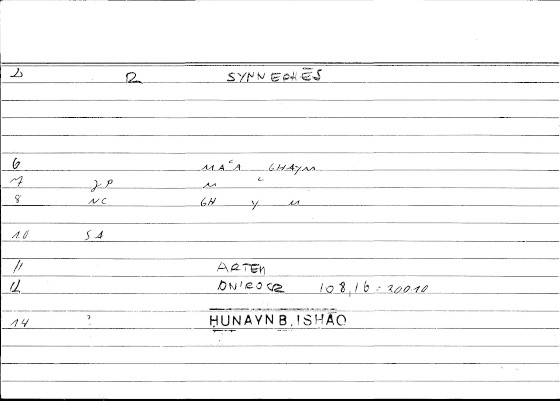 2 R SYNNEPHĒS
6 MAʿA GHAYM
7 2P M ʿ
8 NC GH Y M
10 SA
11 ARTEM
12 ONIROCR 108,16 = 20010
14 ? HUNAYN B. ISHĀQ